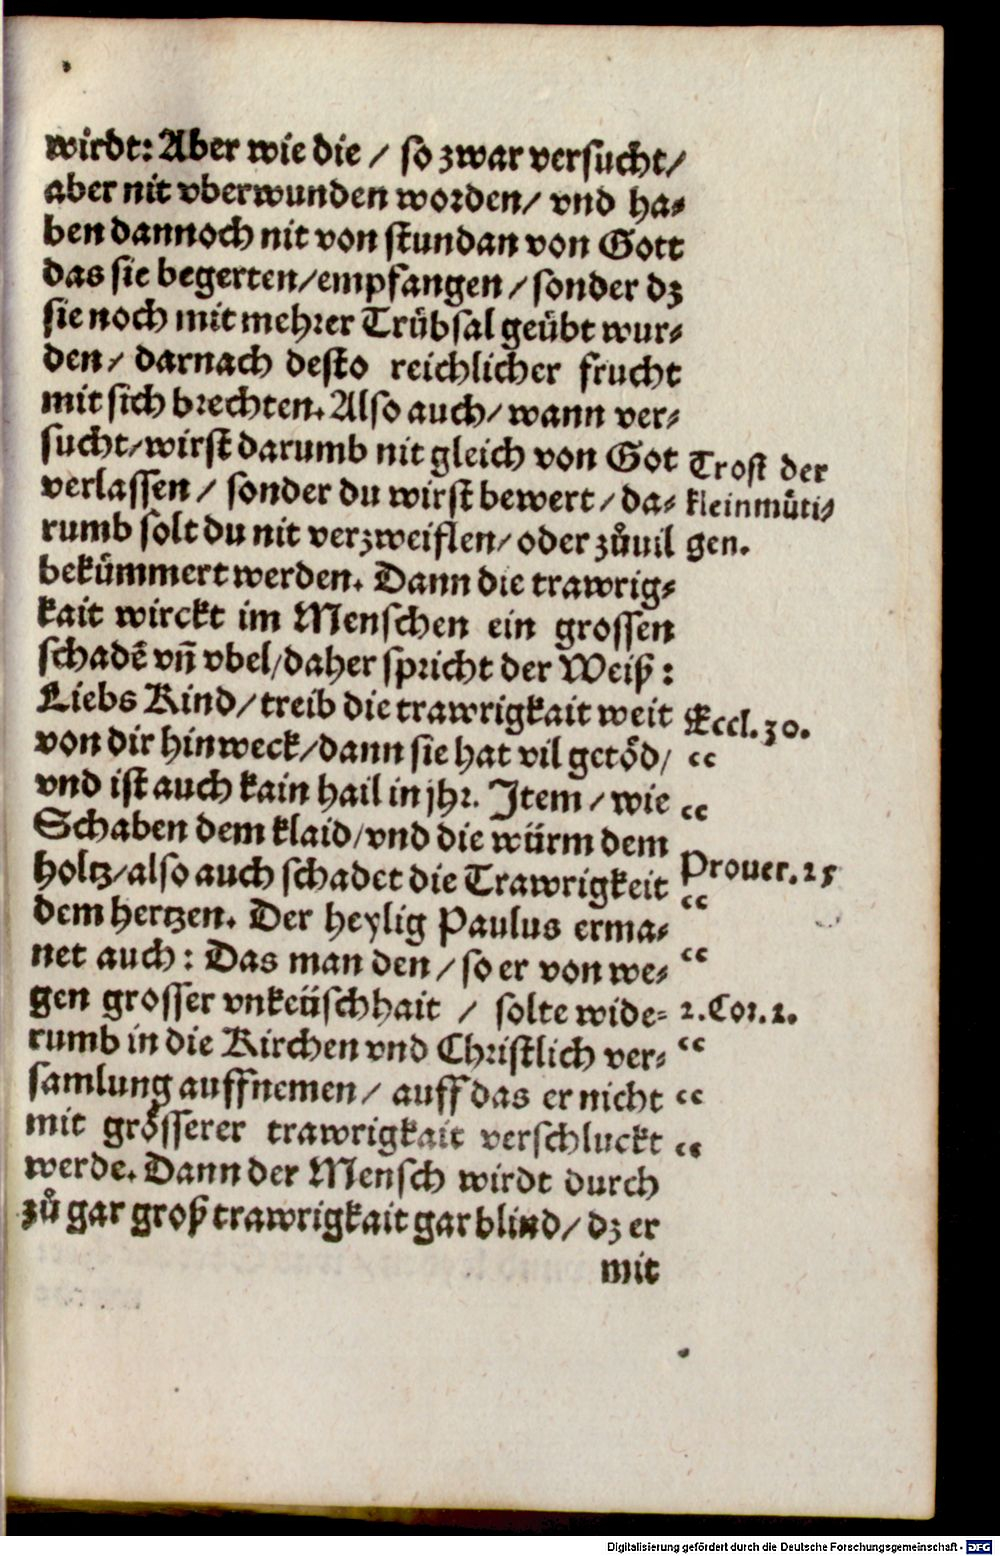 wirdt: Aber wie die / so zwar versucht /
aber nit vberwunden worden / vnd ha⸗
ben dannoch nit von stundan von Gott
das sie begerten / empfangen / sonder dz
sie noch mit mehrer Trübsal geübt wur⸗
den / darnach desto reichlicher frucht
mit sich brechten. Also auch / wann ver⸗
sucht / wirst darumb nit gleich von Got
verlassen / sonder du wirst bewert / da⸗
rumb solt du nit verzweiflen / oder zůuil
bekümmert werden. Dann die trawrig⸗
kait wirckt im Menschen ein grossen
schadẽ vñ vbel / daher spricht der Weiß:
Liebs Kind / treib die trawrigkait weit
von dir hinweck / dann sie hat vil getöd /
vnd ist auch kain hail in jhr. Item / wie
Schaben dem klaid / vnd die würm dem
holtz / also auch schadet die Trawrigkeit
dem hertzen. Der heylig Paulus erma⸗
net auch: Das man den / so er von we⸗
gen grosser vnkeüschhait / solte wide⸗
rumb in die Kirchen vnd Christlich ver⸗
samlung auffnemen / auff das er nicht
mit grösserer trawrigkait verschluckt
werde. Dann der Mensch wirdt durch
zů gar groß trawrigkait gar blind / dz er
mit
Trost der
kleinmüti⸗
gen.
Eccl. 30.
“
“
Prouer. 25
“
“
2. Cor. 2.
“
“
“
Digitalisierung gefördert durch die Deutsche Forschungsgemeinschaft - DFG